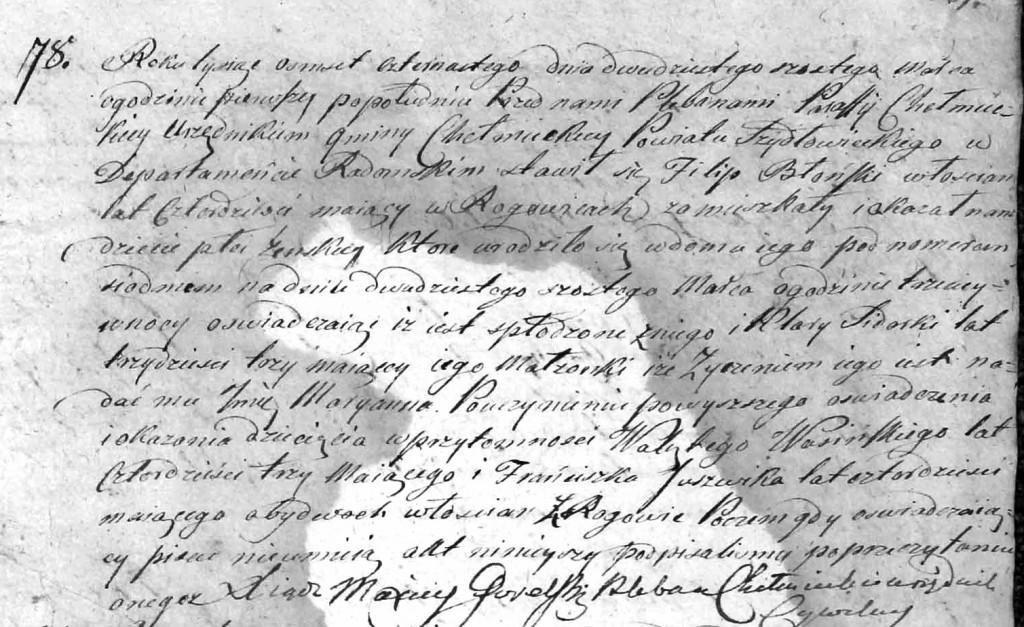 78. Roku tysiąc osmset czternastego dnia dwudziestego szostego Marca
ogodzinie pierwszey popołudniu Przed nami Plebanami Paraffij Chełmic-
kiey Urzędnikiem gminy Chełmickiey Powiatu Szydłowieckiego w
Departamencie Radomskim stawił się Filip Błoński włoscian
lat czterdziesci maiący w Rogowicach zamieszkały i okazał nam
dziecie płci zenskiey ktore urodziło się wdomu iego pod numerem
siodmem na dniu dwudziestego szostego Marca ogodzinie trzeciey
wnocy oswiadczaiąc iz iest spłodzone zniego i Klary Sidorski lat
trzydziesci trzy maiącey iego Małzonki i ze Zyczeniem iego iest na-
dać mu Imię Maryanna. Pouczynieniu powyzszego oswiadczenia
i okazania dziecięcia wprzytomnosci Walętego Wasinskiego lat
czterdziesci trzy Maiącego i Franciszka lat czterdziesci
maiącego obydwoch włoscian z Rogowic Poczem gdy oswiadczaią-
cy pisac nieumieią akt ninieyszy podpisalismy poprzeczytaniu
onegoz Xiądz Maciey Pleban Chełmicki i urzędnik
Cywilny